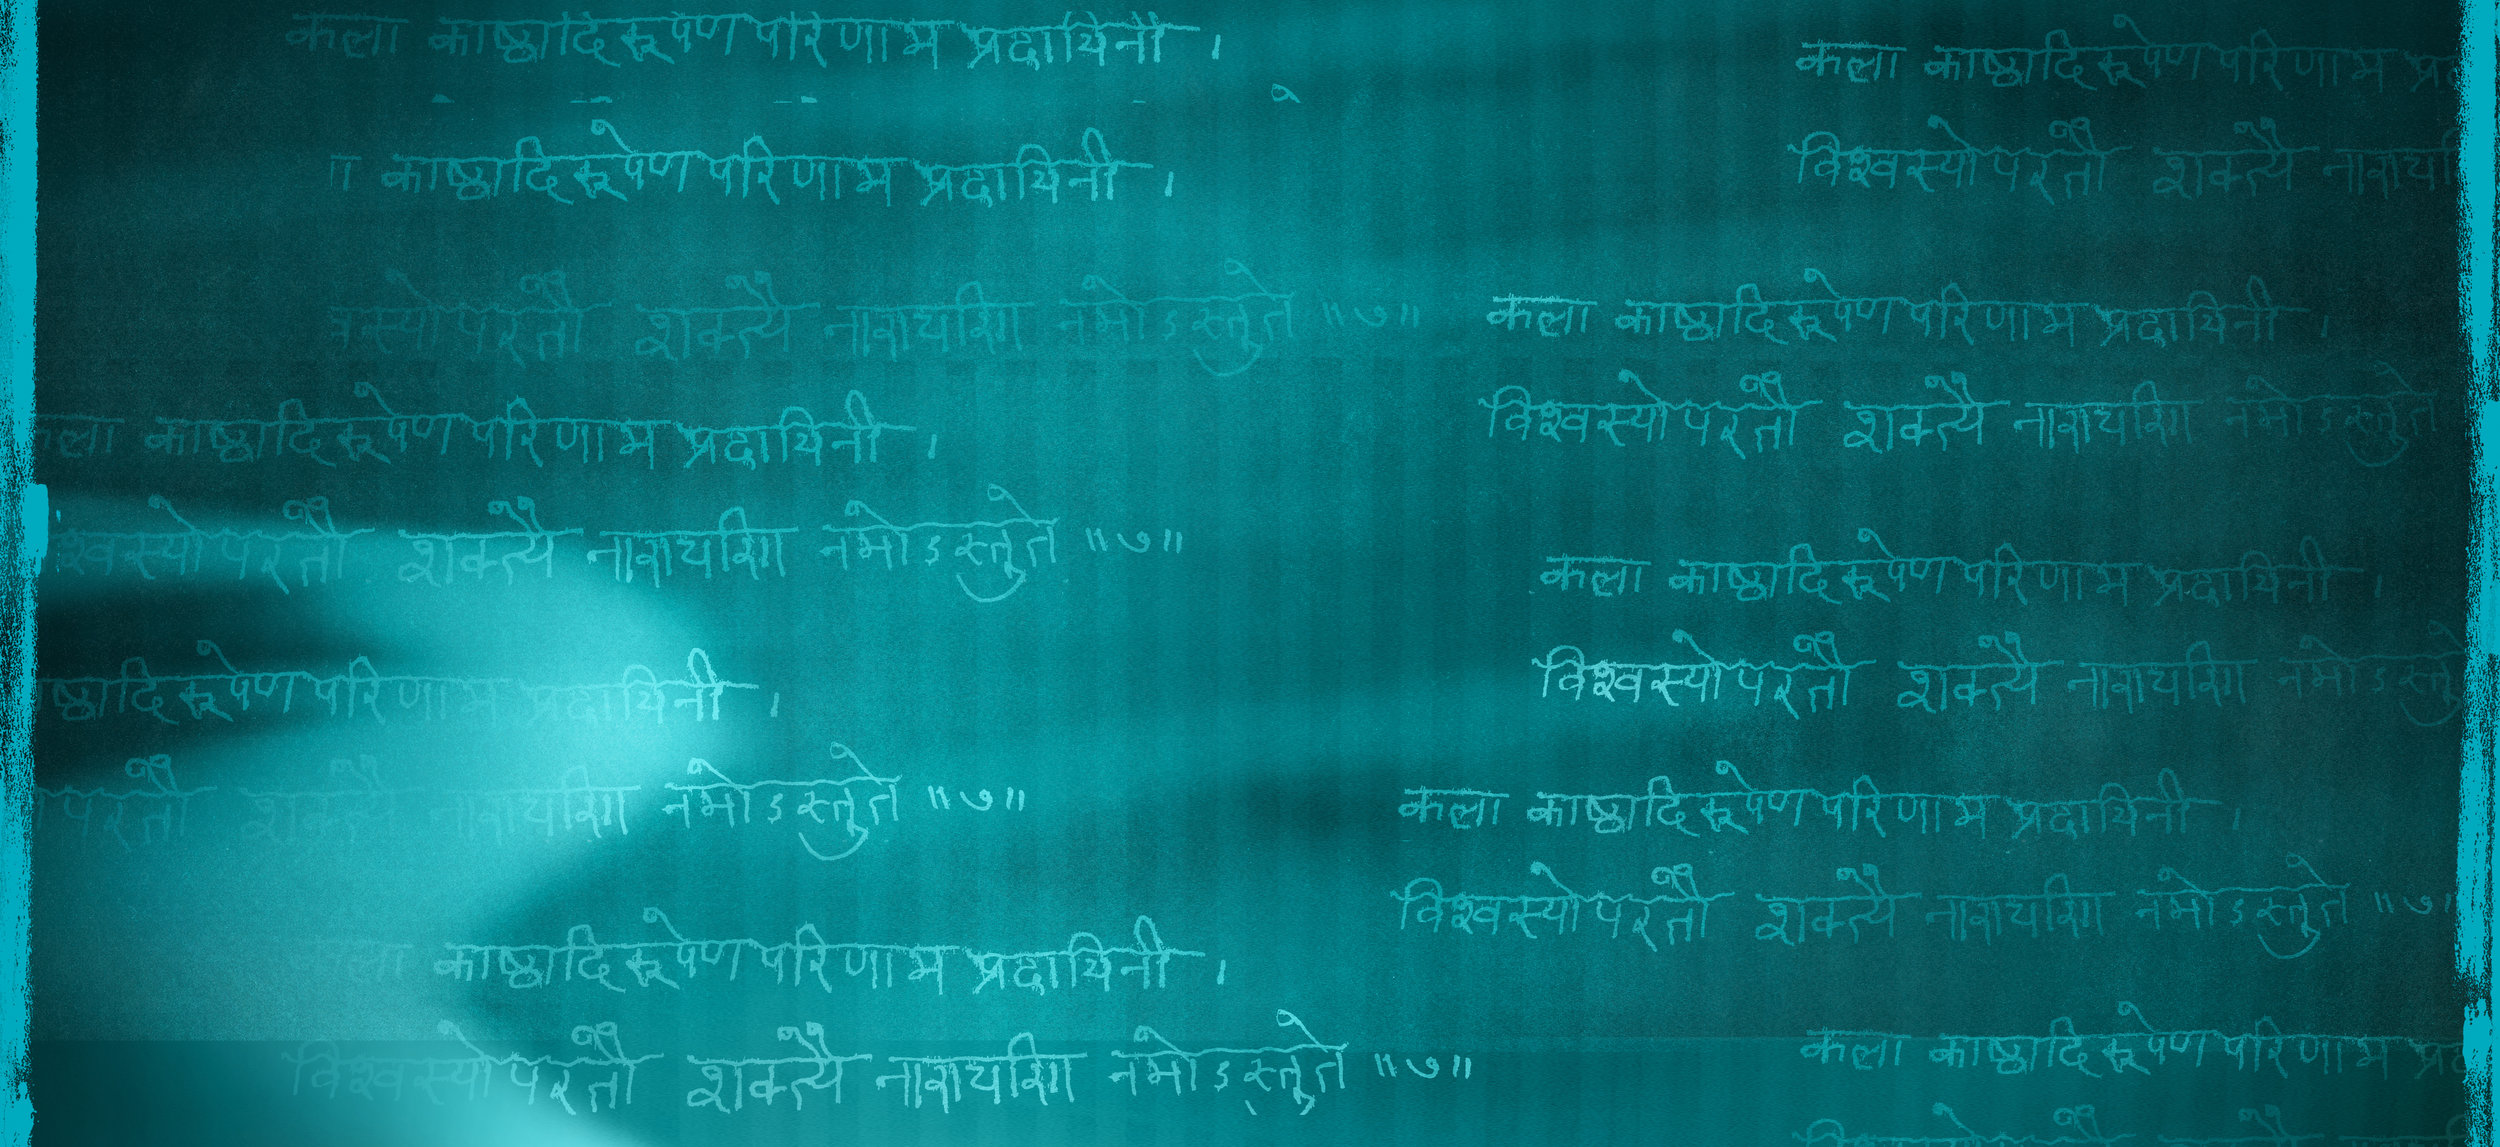 कला काष्ठादि रूपेण परिणाम प्रदायिनी ।
काष्ठादि रूपेण परिणाम प्रदायिनी ।
स्योपरतौ शक्त्यै नारायणि नमोऽस्तुते ॥७॥
कला काष्ठादि रूपेण परिणाम प्रदायिनी ।
श्वस्योपरतौ शक्त्यै नारायणि नमोऽस्तुते ॥७॥
ष्ठादि रूपेण परिणाम प्रदायिनी ।
परतौ शक्त्यै नारायणि नमोऽस्तुते ॥७॥
कला काष्ठादि रूपेण परिणाम प्रदायिनी ।
विश्वस्योपरतौ शक्त्यै नारायणि नमोऽस्तुते ॥७॥
कला काष्ठादि रूपेण परिणाम
विश्वस्योपरतौ शक्त्यै
कला काष्ठादि रूपेण परिणाम प्रदायिनी ।
विश्वस्योपरतौ शक्त्यै नारायणि नमोऽस्तुते
कला काष्ठादि रूपेण परिणाम प्रदायिनी ।
विश्वस्योपरतौ शक्त्यै नारायणि नमोऽस्तु
कला काष्ठादि रूपेण परिणाम प्रदायिनी ।
विश्वस्योपरतौ शक्त्यै नारायणि नमोऽस्तुते ॥७॥
कला काष्ठादि रूपेण परिणाम